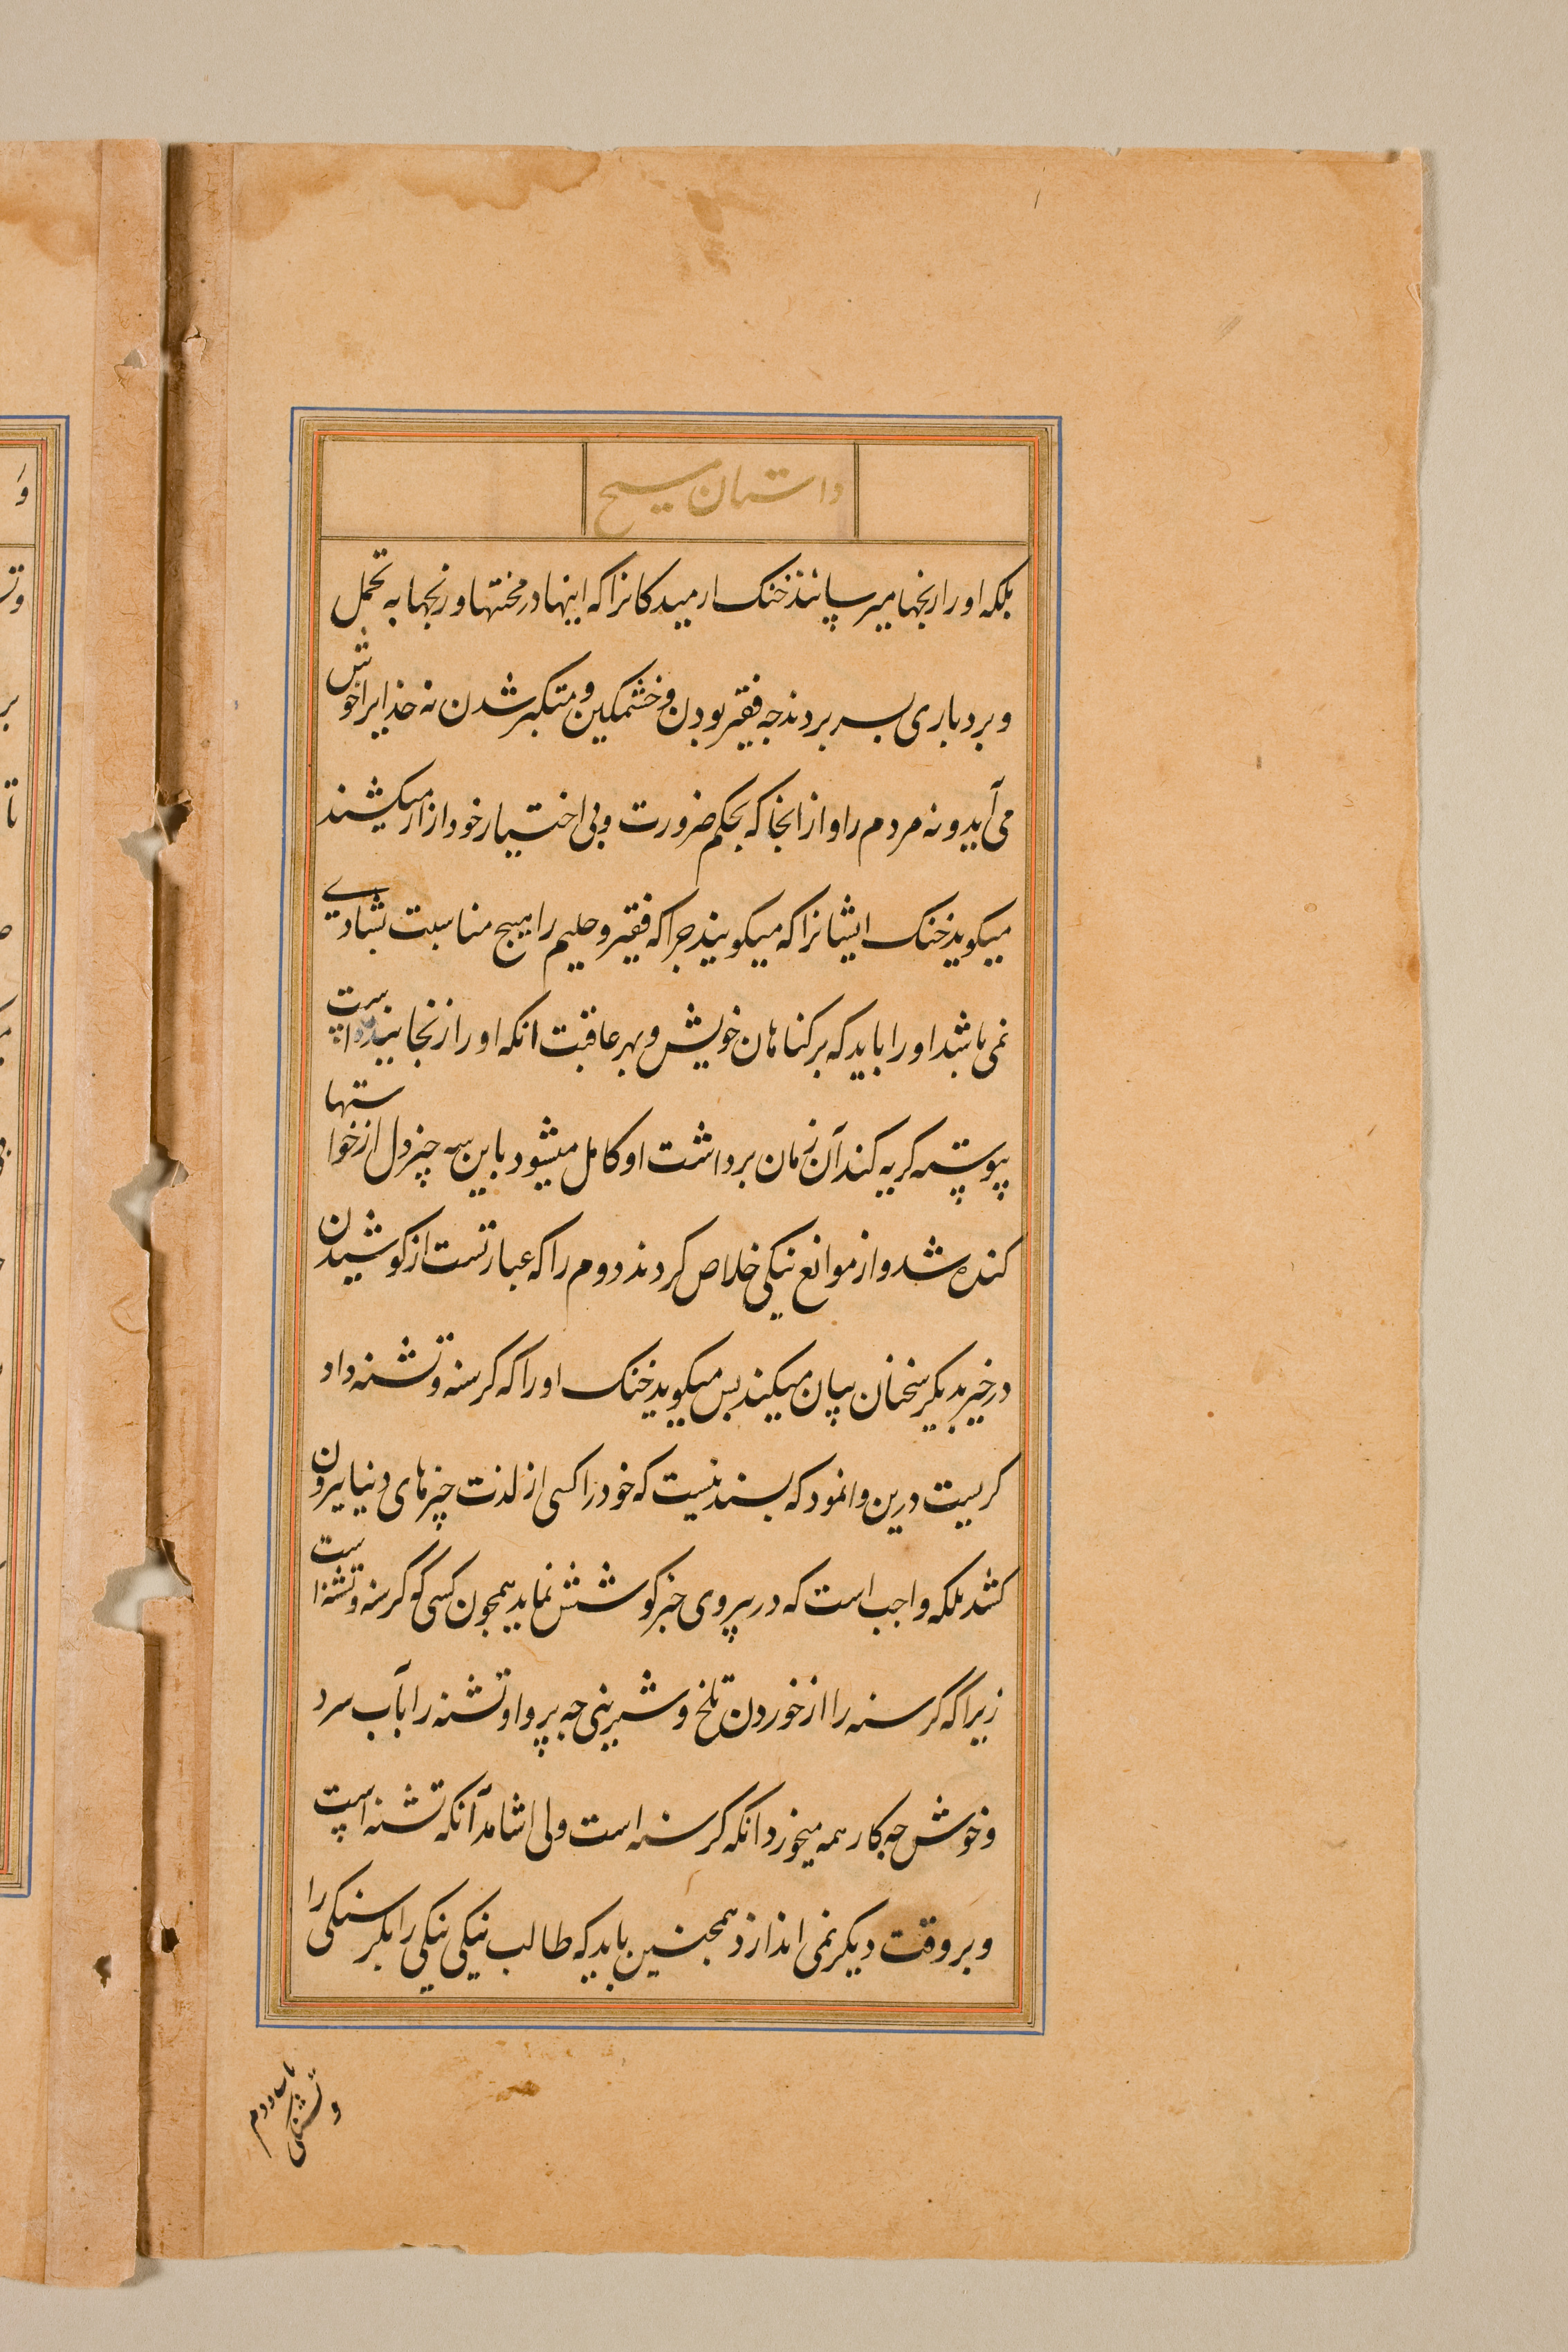 داستان مسیح
بلکه او را رنجها میرسانند خنک ارمیدکانرا که اینها در محنتها و رنجها به تحمل
و بردباری بسر بردند جه فقیر بودن و خشمکین و متکبر شدن نه خدایرا خوش
می آید و نه مردم را و از انجا که بحکم ضرورت و بی اختیار خود ازار میکشند
میکوید خنک ایشانرا که میکویند جرا که فقیر و حلیم را هیج مناسبت بشادی
نمی باشد او را باید که بر کناهان خویش و بهر عاقبت انکه او را رنجانیده است
پیوسته کریه کند آن زمان برداشت او کامل میشود باین سه چیز دل از خواستها
کنده شد و از موانع نیکی خلاص کردند دوم را که عبارتست از کوشیدن
در خیر بدیکر سخنان بیان میکند بس میکوید خنک او را که کرسنه و تشنه داد
کریست درین وانمود که بسند نیست که خود را کسی از لذت چیزهای دنیا بیرون
کشد بلکه واجب است که در پیروی خیر کوشش نماید همجون کسی کو کرسنه و تشنه است
زیرا که کرسنه را از خوردن تلخ و شیرینی جه پروا و تشنه را بآب سرد
و خوش جه کار همه میخورد انکه کرسنه است و می اشامد آنکه تشنه است
و بر وقت دیکر نمی اندازد همجنین باید که طالب نیکی نیکی را بکرسنکی را
و تشنکی